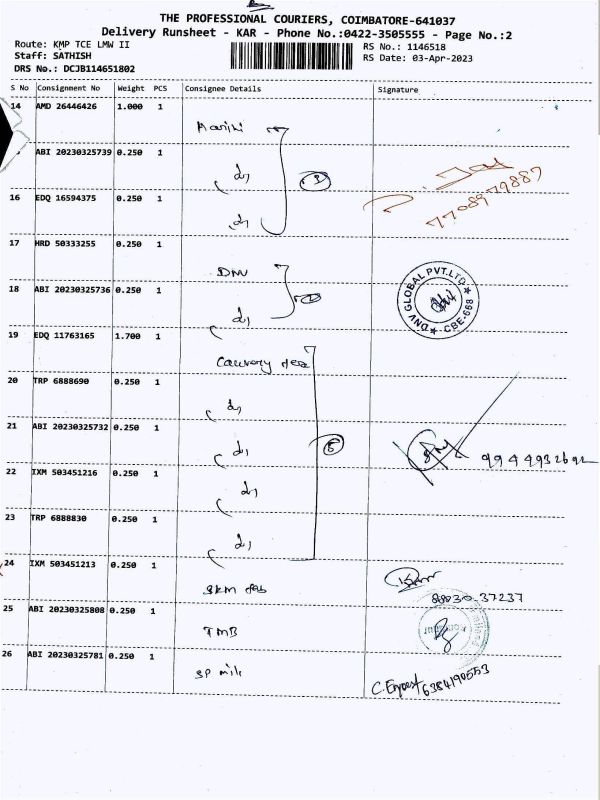 THE PROFESSIONAL COURIERS, COIMBATORE-641037
Delivery Runsheet - KAR - Phone No.:0422-3505555 - Page No.:2
Route: KMP TCE LMW II
RS No.: 1146518
Staff: SATHISH
RS Date: 03-Apr-2023
DRS No.: DCJB114651802
S No Consignment No Weight PCS Consignee Details Signature
14 AMD 26446426 1.000 1
ABI 20230325739 0.250 1
7708979887
16 EDQ 16594375 0.250 1
17 HRD 50333255 0.250 1
DNV
DNV GLOBAL PVT.LTD
CBE-668
18 ABI 20230325736 0.250 1
19 EDQ 11763165 1.700 1
20 TRP 6888690 0.250 1
21 ABI 20230325732 0.250 1
22 IXM 503451216 0.250 1
23 TRP 6888830 0.250 1
24 IXM 503451213 0.250 1
37237
25 ABI 20230325808 0.250 1
TMB
26 ABI 20230325781 0.250 1
SP mill
6384190553